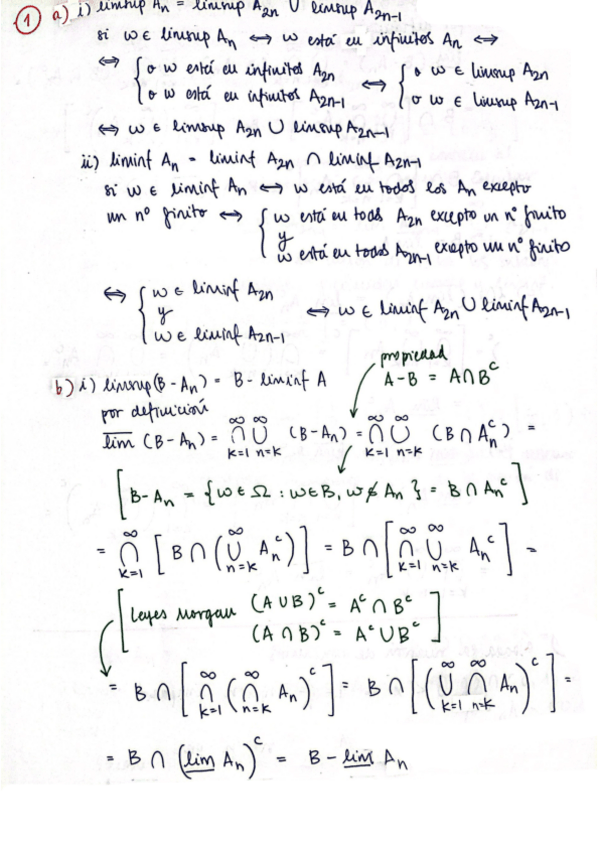 1 a) i) limsup An = limsup A2n ∪ limsup A2n-1
si w ∈ limsup An ⟺ w está en infinitos An ⟺
⟺ { o w está en infinitos A2n ⟺ { o w ∈ limsup A2n
o w está en infinitos A2n-1 o w ∈ limsup A2n-1
⟺ w ∈ limsup A2n ∪ limsup A2n-1
ii) liminf An = liminf A2n ∩ liminf A2n-1
si w ∈ liminf An ⟺ w está en todos los An excepto
un nº finito ⟺ { w está en todos A2n excepto un nº finito
y
w está en todos A2n-1 excepto un nº finito
⟺ { w ∈ liminf A2n
y ⟺ w ∈ liminf A2n ∪ liminf A2n-1
w ∈ liminf A2n-1
propiedad
b) i) limsup(B - An) = B - liminf A A - B = A ∩ B^c
por definición
lim (B - An) = ∩_{k=1}^∞ ∪_{n=k}^∞ (B - An) = ∩_{k=1}^∞ ∪_{n=k}^∞ (B ∩ An^c) =
[B - An = {w ∈ Ω : w ∈ B, w ∉ An} = B ∩ An^c]
= ∩_{k=1}^∞ [B ∩ (∪_{n=k}^∞ An^c)] = B ∩ [∩_{k=1}^∞ ∪_{n=k}^∞ An^c] =
[Leyes Morgan (A ∪ B)^c = A^c ∩ B^c
(A ∩ B)^c = A^c ∪ B^c]
= B ∩ [∩_{k=1}^∞ (∩_{n=k}^∞ An)^c] = B ∩ [(∪_{k=1}^∞ ∩_{n=k}^∞ An)^c] =
= B ∩ (lim An)^c = B - lim An